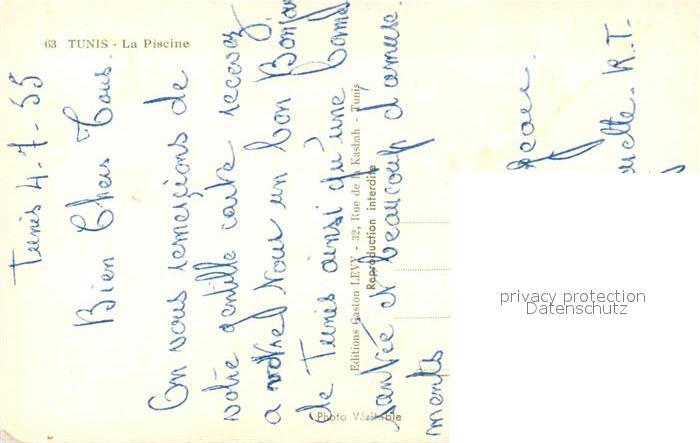 63 TUNIS - La Piscine
Tunis 4-7-55
Bien Chers Tous.
On vous remerçions de
votre gentille carte recevez
a votre tour un bon Bonjour
de Tunis ainsi qu'une bonne
santée et beaucoup d'amuse
ments
Editions Gaston LEVY - 32, Rue de la Kasbah - Tunis
Reproduction interdite
Photo Véritable
R.T.
privacy protection
Datenschutz